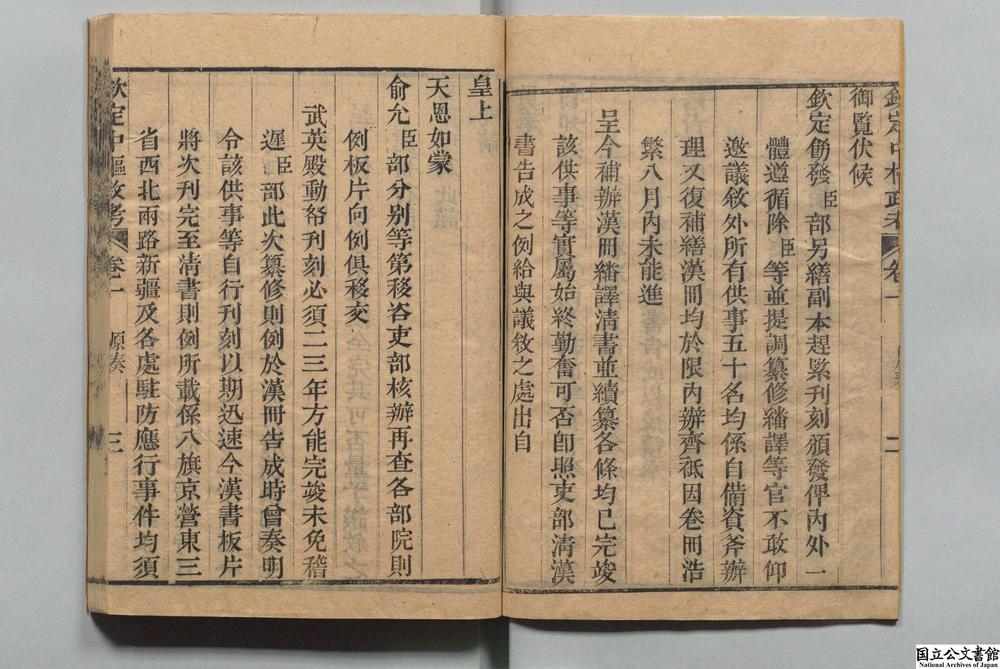 欽定中樞政考 卷一 原奏 二
御覽伏候
欽定飭發臣部另繕副本趕緊刊刻頒發俾內外一
體遵循除臣等並提調纂修繙譯等官不敢仰
邀議敘外所有供事五十名均係自備資斧辦
理又復補繕漢冊均於限內辦齊祗因卷冊浩
繁八月內未能進
呈今補辦漢冊繙譯清書並續纂各條均已完竣
該供事等實屬始終勤奮可否卽照吏部清漢
書告成之例給與議敘之處出自
皇上
天恩如蒙
俞允臣部分别等第移咨吏部核辦再查各部院則
例板片向例俱移交
武英殿動帑刊刻必須二三年方能完竣未免稽
遲臣部此次纂修則例於漢冊告成時曾奏明
令該供事等自行刊刻以期迅速今漢書板片
將次刊完至清書則例所載係八旗京營東三
省西北兩路新疆及各處駐防應行事件均須
欽定中樞政考 卷一 原奏 三
国立公文書館
National Archives of Japan